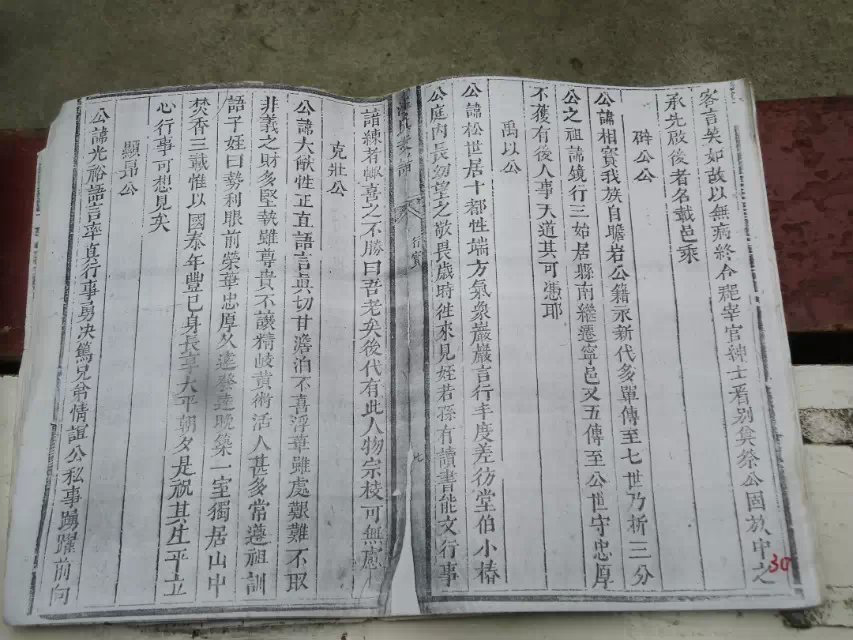 客言笑如故以無病終合邑宰官紳士看別矣祭公固族中之
承先啟後者名載邑乘
碎公公
公諱相寶我族自瞻岩公籍永新代多單傳至七世乃析三分
公之祖諱鏡行三始居縣南繼遷寧邑又五傳至公世守忠厚
不獲有後人事天道其可憑耶
禹以公
公諱松世居十都性端方氣象嚴嚴言行丰度差彷堂伯小椿
公庭內長幼望之敬畏歲時往來見姪若孫有讀書能文行事
行實
七
諳練者輒喜之不勝曰吾老矣後代有此人物宗枝可無慮
克壯公
公諱大猷性正直語言真切甘澹泊不喜浮華雖處艱難不取
非義之財多堅執雖尊貴不諛精岐黃術活人甚多常遵祖訓
語子姪曰勢利眼前榮華忠厚久遠發達晚築一室獨居山中
焚香三載惟以國泰年豐已身長享太平朝夕是祝其生平立
心行事可想見矣
顯昂公
公諱光裕語言率真行事勇决篤兄弟情誼公私事踴躍前向
30